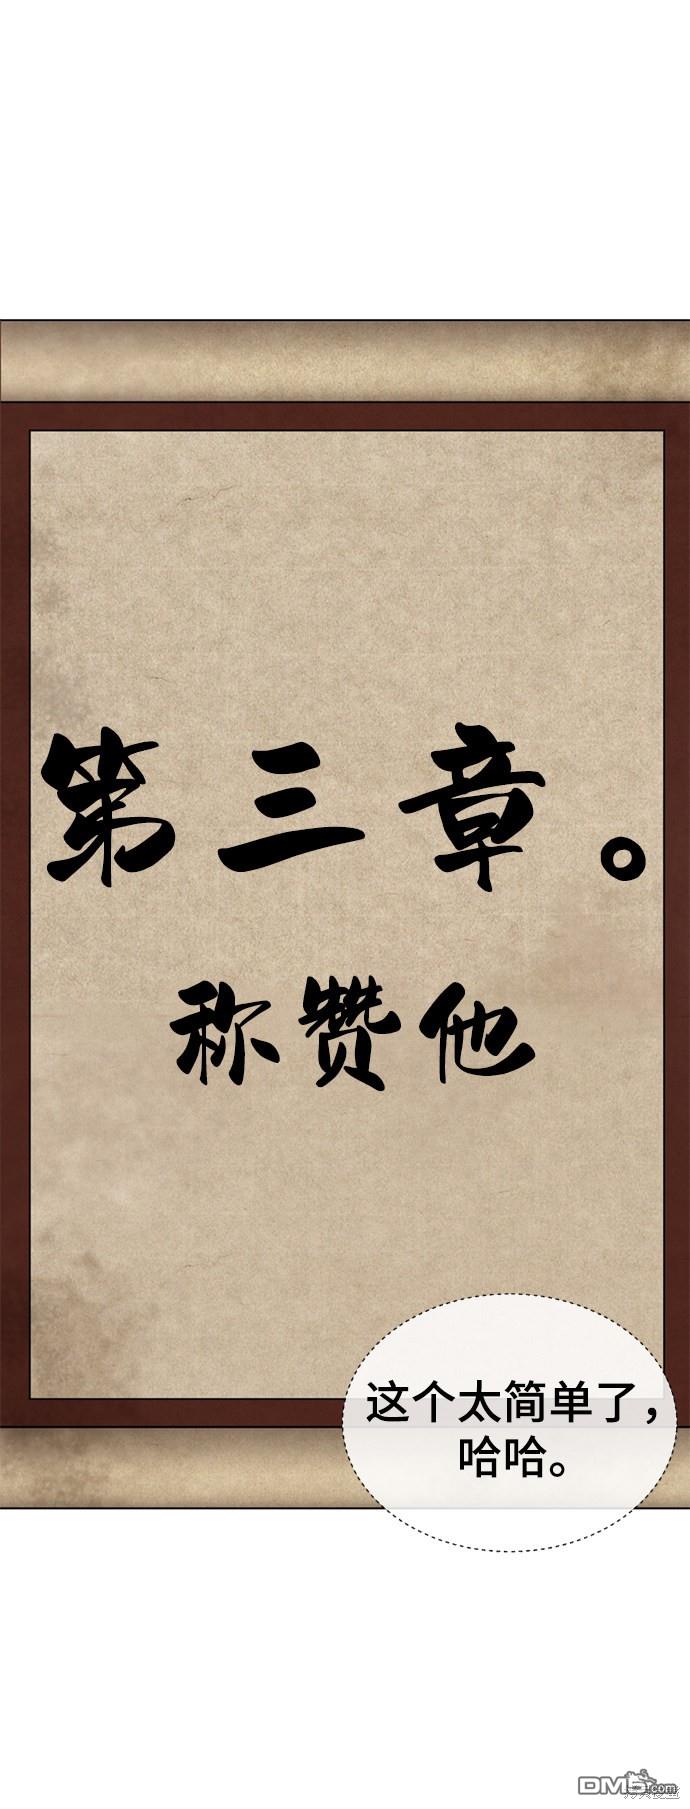 第三章。
称赞他
这个太简单了，
哈哈。
DM5.com